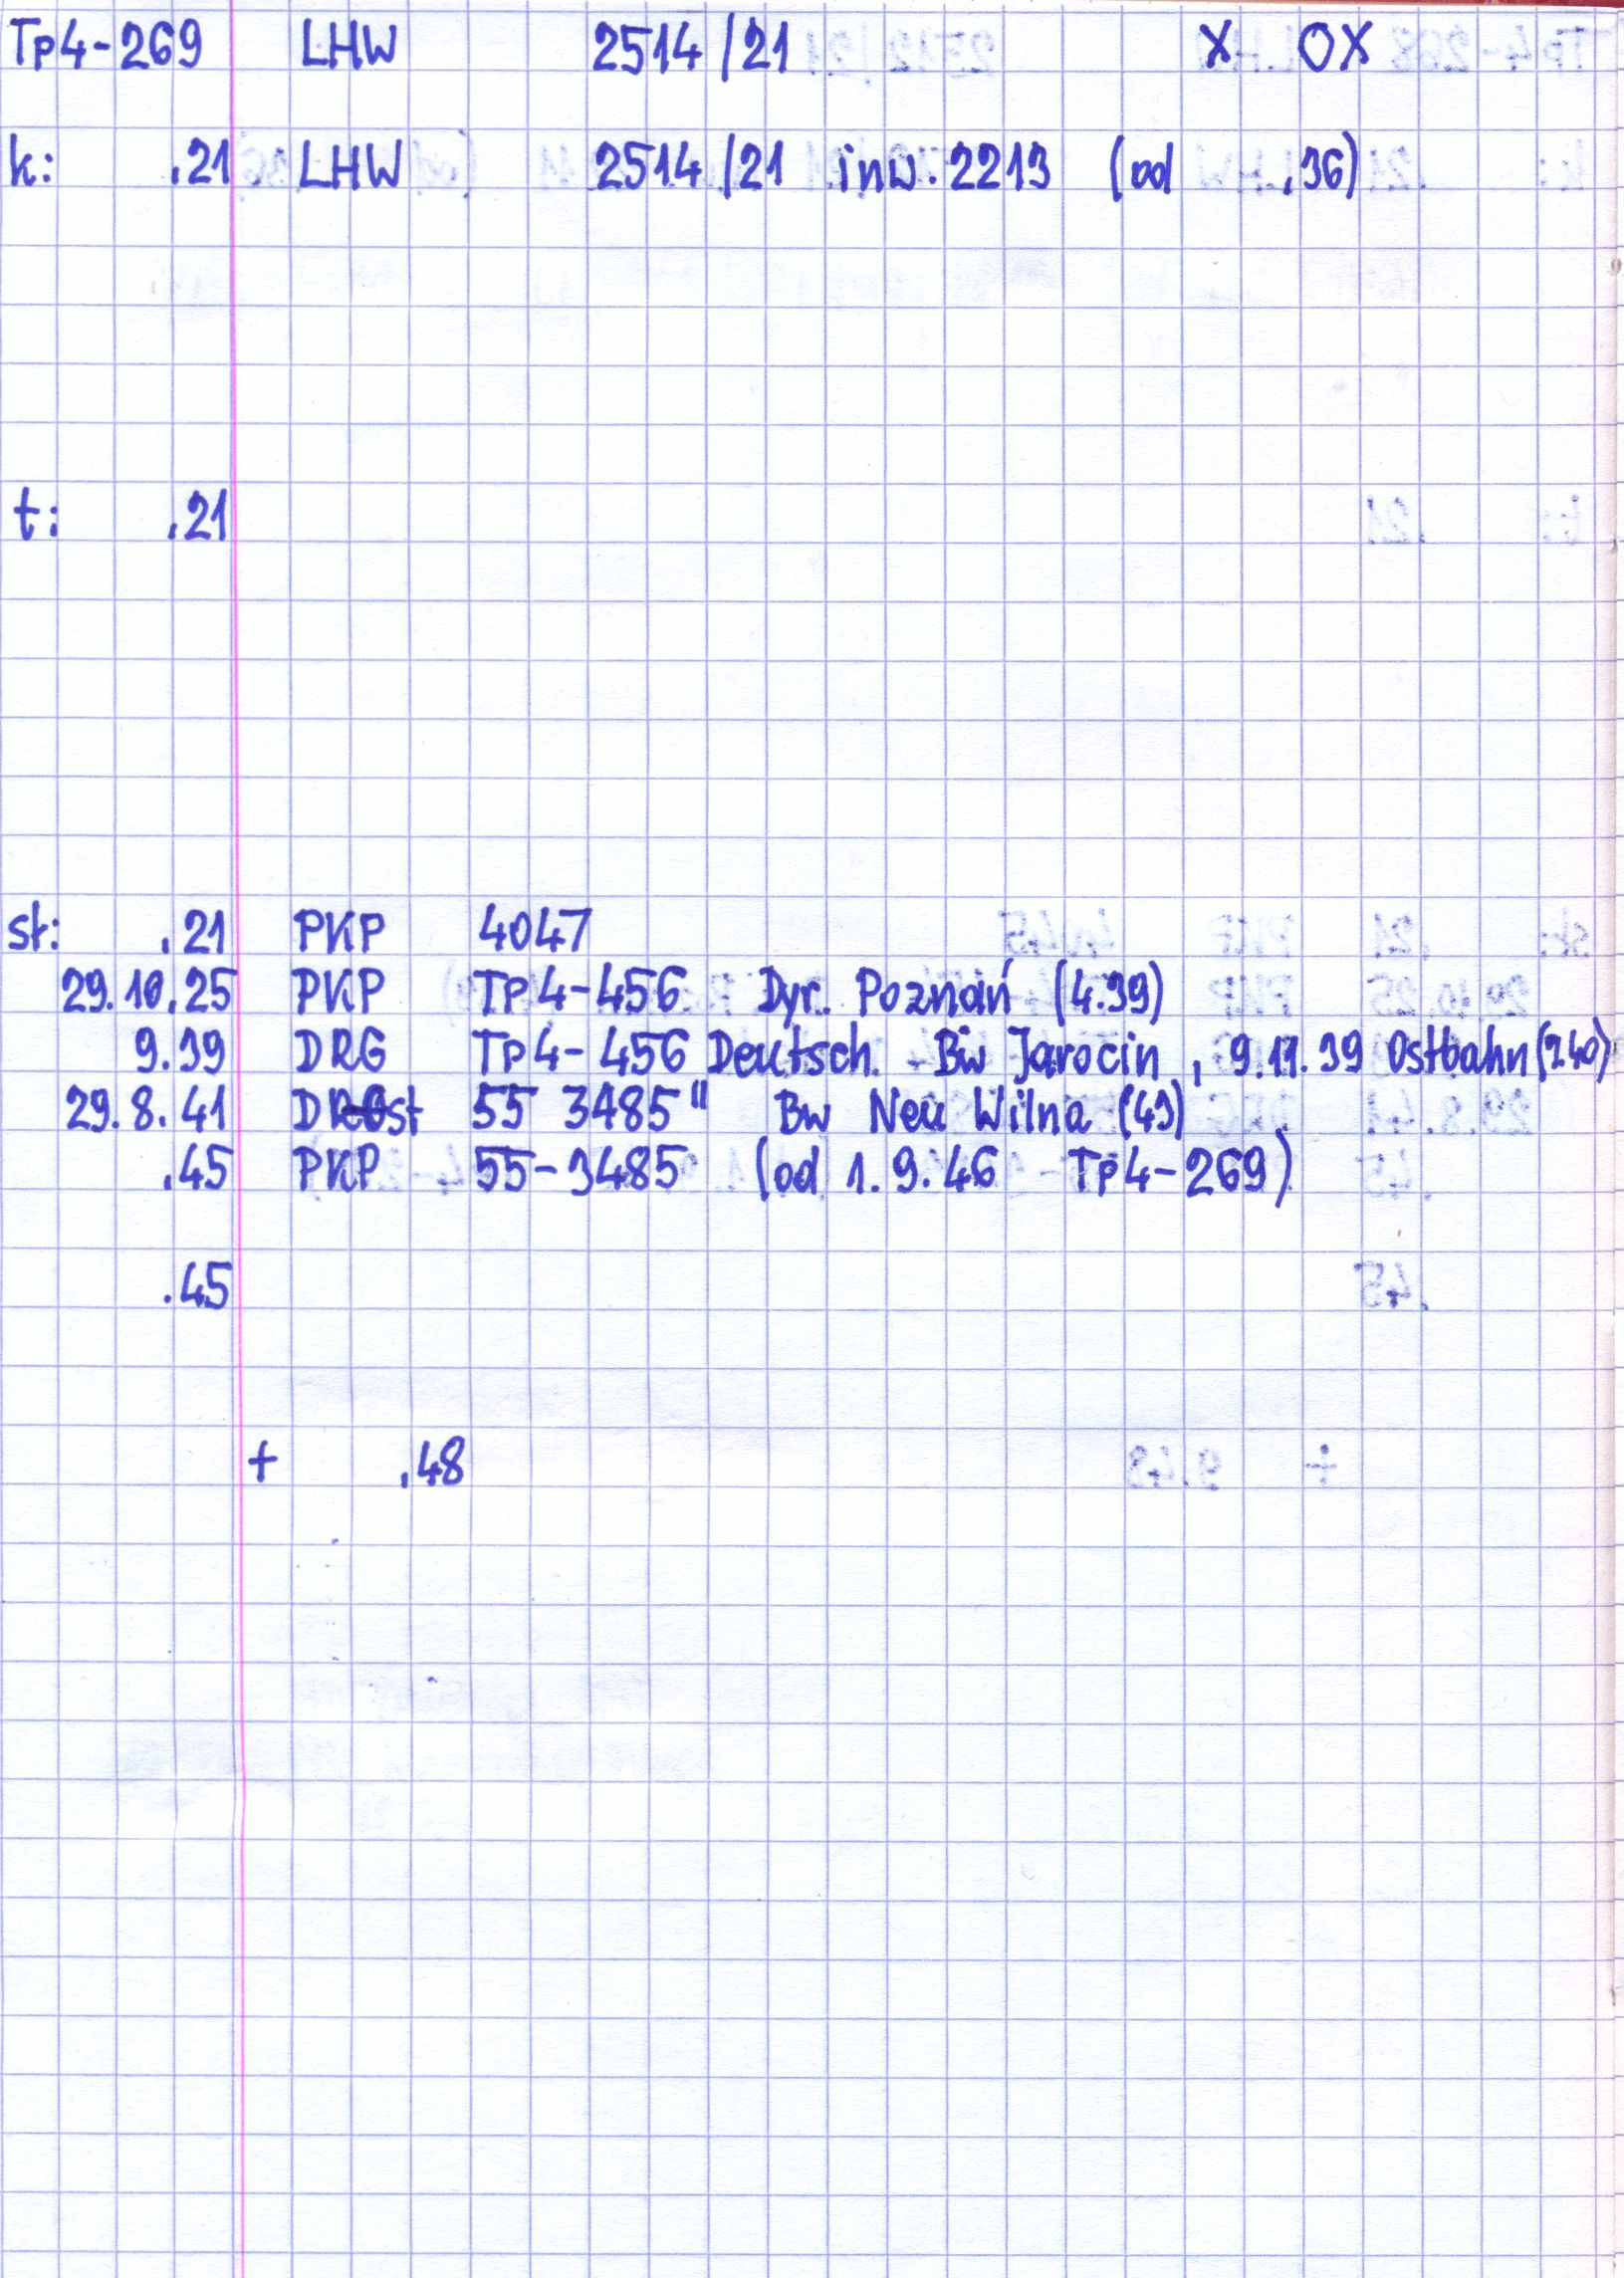 Tp4-269 LHW 2514/21 X OX
k: .21 LHW 2514/21 inw. 2213 (od .36)
t: .21
st: .21 PKP 4047
29.10.25 PKP Tp4-456 Dyr. Poznań (4.39)
9.39 DRG Tp4-456 Deutsch. Bw Jarocin, 9.11.39 Ostbahn
29.8.41 55 3485" Bw Neu Wilna (43)
.45 PKP 55-3485 (od 1.9.46 Tp4-269)
.45
+ .48